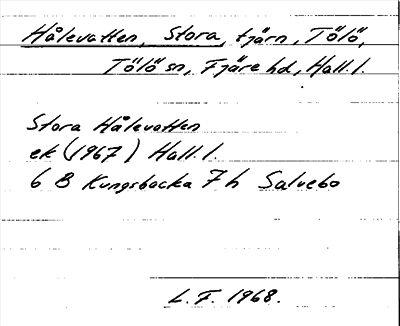 Hålevatten, Stora, tjärn, Tölö,
Tölö sn, Fjäre hd, Hall. l.
Stora Hålevatten
ek (1967) Hall. l.
6 B Kungsbacka 7 h Salvebo
L. F. 1968.